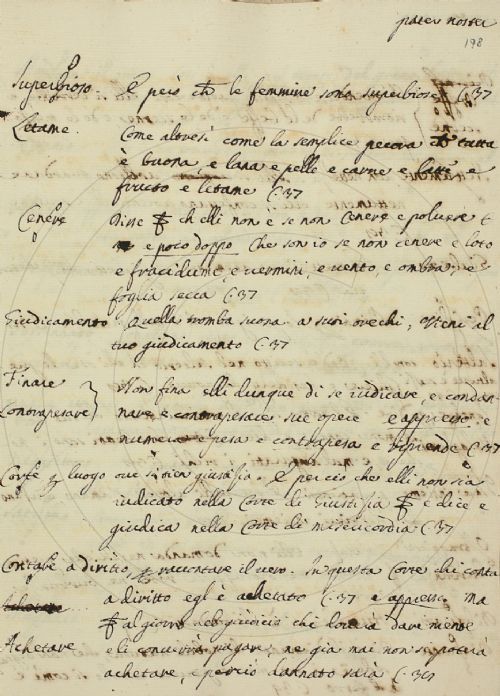 pater noster
198
Superbioso. E però che le femmine sono superbiose C. 37
Letame. Come altresì come la semplice pecora che tutta
è buona e lana e pelle e carne e latte e
fructo e letame C. 37
Cenere Disse ch elli non è se non Cenere e poluere
e poco doppo Che son io se non cenere e loto
e fracidume, e uermini, e uento, e ombra, e
foglia secca C. 37
Giudicamento. Quella tromba suona a suoi orechi, Vieni al
tuo giudicamento C. 37
Finare
Contrapesare Non fina elli dunque di se iudicare, e condan-
nare e contrapesare sue opere e appresso e
numera e pesa e contrapesa e riprende C. 37
Corte luogo oue si tien giustisia. E perciò che elli non sia
iudicato nella Corte di Giustisia e dice e
giudica nella Corte di misericordia C. 37
Contare a diritto raccontare il uero. In questa Corte chi conta
a diritto egli è achetato C. 37 e appresso ma
Achetare al giorno del giudicio chi dare
e li conuerrà pagare, ne già mai non si poterà
achetare, e perciò dannato sarà C. 37